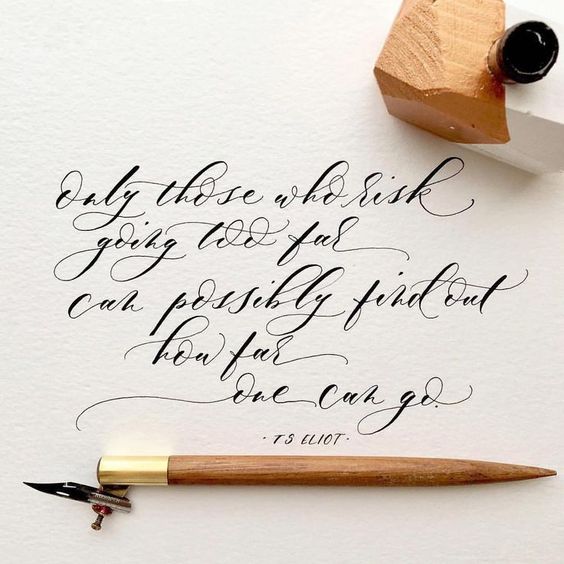 Only those who risk
going too far
can possibly find out
how far
one can go.
· TS ELIOT ·